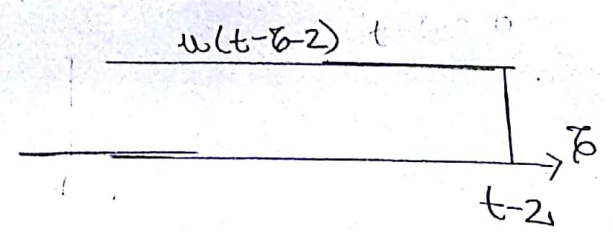 u(t-τ-2)
τ
t-2